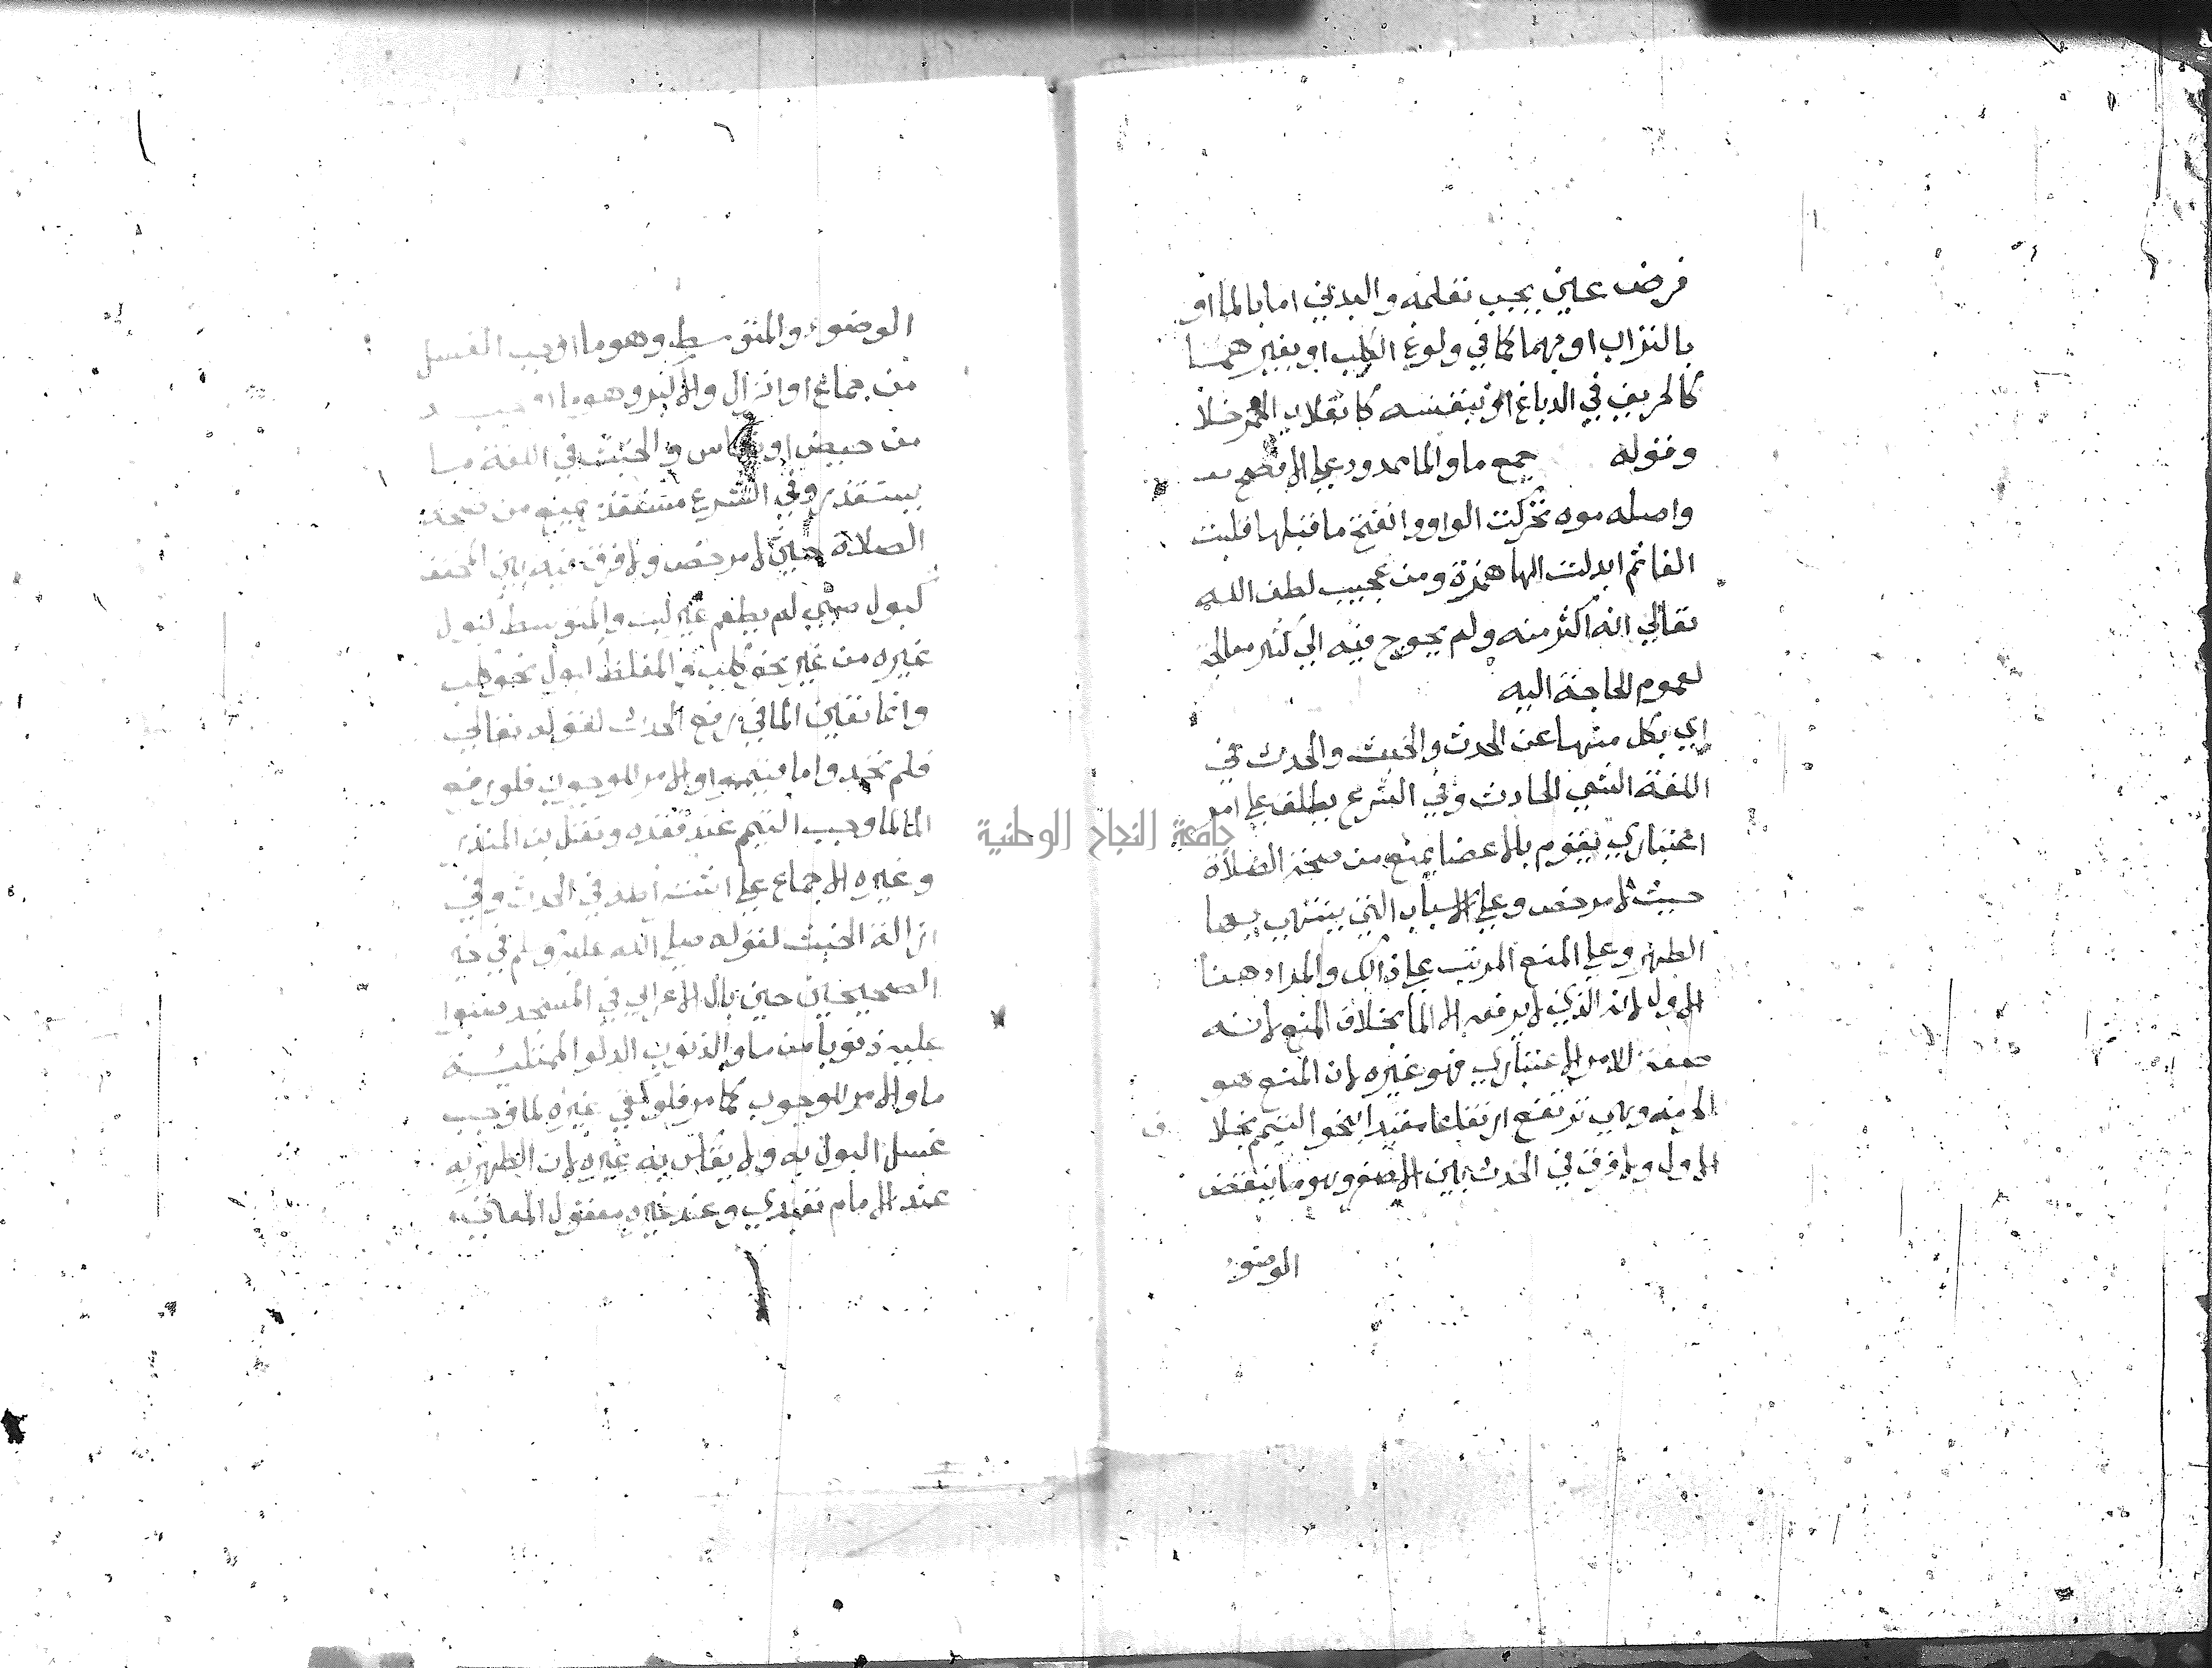 فرض عين يجب تعلمه والبدني اما بالما او
بالتراب او بهما كما في ولوغ الكلب او بغيرهما
كالحريف في الدباغ او بنفسه كانقلاب الخمر خلا
وقوله جمع ما والما ممدود علي الافصح
واصله موه تحركت الواو وانفتح ما قبلها قلبت
الفا ثم ابدلت الها همزة ومن عجيب لطف الله
تعالي انه اكثر منه ولم يحوج فيه الي كثير معالجة
لعموم الحاجة اليه
اي بكل منها عن الحدث والخبث والحدث في
اللغة الشي الحادث وفي الشرع يطلق علي امر
اعتباري يقوم بالاعضا يمنع من صحة الصلاة
حيث لا مرخص وعلي الاسباب التي ينتهي بها
الطهر وعلي المنع المرتب علي ذالك والمراد هنا
الاول لانه الذي لا يرفعه الا الما بخلاف المنع لانه
صفة الامر الاعتباري فهو غيره لان المنع هو
الاول ولا فرق في الحدث بين الاصغر وهو ما ينقض
الوضو
الوضوء والمتوسط وهو ما اوجب الغسل
من جماع او انزال والاكبر وهو ما اوجبه
من حيض او نفاس والخبث في اللغة ما
يستقذر وفي الشرع مستقذر يمنع من صحة
الصلاة حيث لا مرخص ولا فرق فيه بين المخفف
كبول صبي لم يطعم غير لبن والمتوسط كبول
غيره من غير نحو كلب والمغلظ كبول نحو كلب
وانما تعين الما في رفع الحدث لقوله تعالي
فلم تجدوا ما فتيمموا والامر للوجوب فلو رفع
الما لما وجب التيمم عند فقده ونقل بن المنذر
وغيره الاجماع علي اشتراطه في الحدث وفي
ازالة الخبث لقوله صلي الله عليه وسلم في خبر
الصحيحين حين بال الاعرابي في المسجد صبوا
عليه ذنوبا من ما والذنوب الدلو الممتليئة
ما والامر للوجوب كما مر فلو كفي غيره لما وجب
غسل البول به ولا يقاس به غيره لان الطهر به
عند الامام تعبدي وعند غيره معقول المعني
جامعة النجاح الوطنية